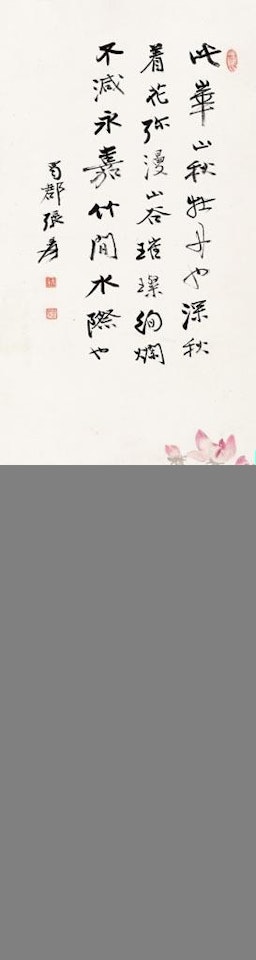 此華山秋牡丹也深秋
着花弥漫山谷璀璨絢爛
不減永嘉竹間水際也
蜀郡張爰